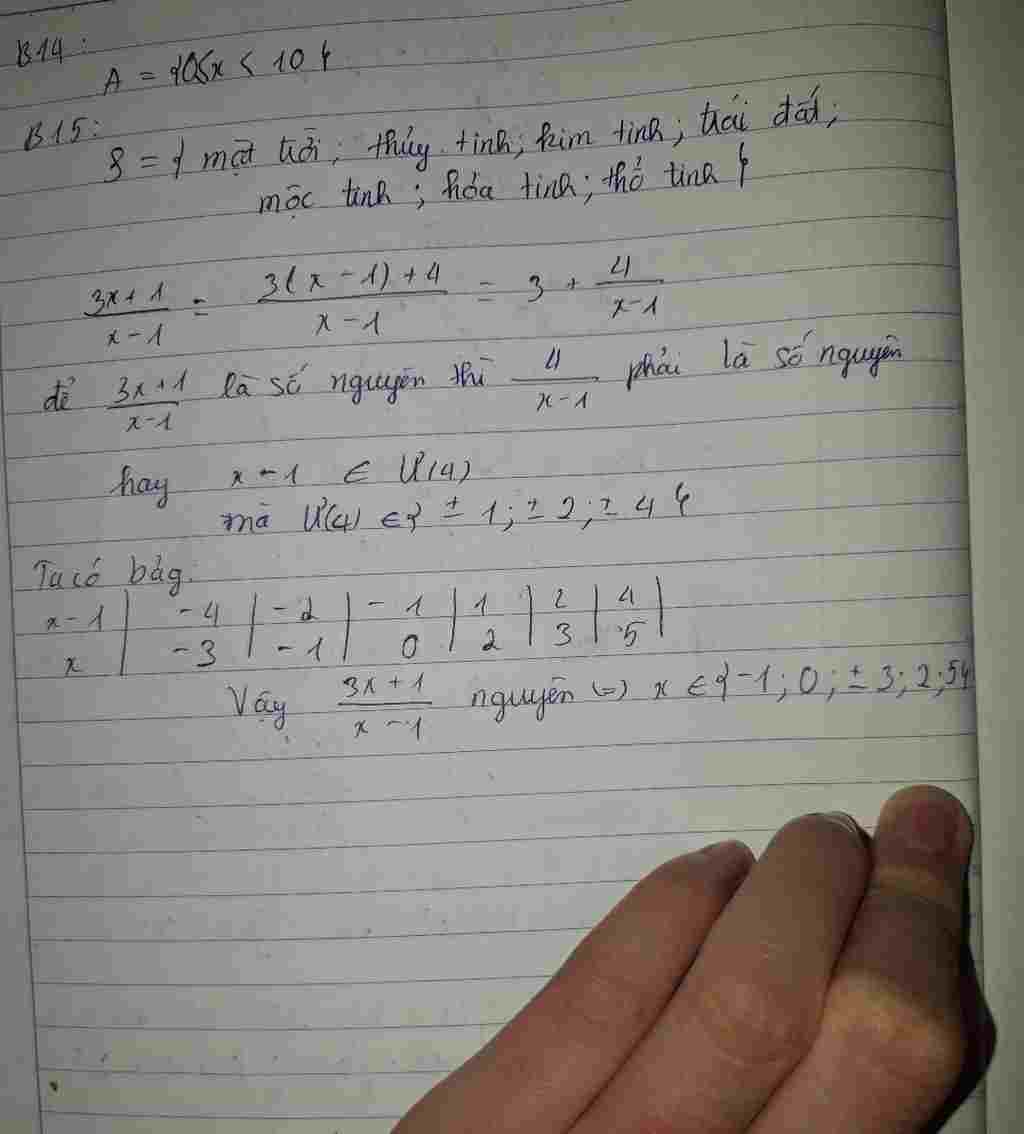 B14:
A = {0≤x < 10}
B15:
S = { mặt trời; thủy tinh; kim tinh; trái đất;
mộc tinh; hỏa tinh; thổ tinh }
3x+1/x-1 = 3(x-1)+4/x-1 = 3 + 4/x-1
để 3x+1/x-1 là số nguyên thì 4/x-1 phải là số nguyên
hay x-1 ∈ Ư(4)
mà Ư(4) ∈ { ±1; ±2; ±4 }
Ta có bảg:
x-1 | -4 | -2 | -1 | 1 | 2 | 4 |
x | -3 | -1 | 0 | 2 | 3 | 5 |
Vậy 3x+1/x-1 nguyên (=) x ∈ {-1; 0; ±3; 2; 5}